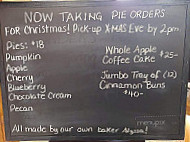 NOW TAKING PIE ORDERS
FOR Christmas! Pick-up X-MAS Eve by 2pm
Pies: $18
Pumpkin
Apple
Cherry
Blueberry
Chocolate Cream
Pecan
Whole Apple
Coffee Cake $25-
Jumbo Tray of (12)
Cinnamon Buns
$40-
All made by our own baker Alyssa!
menupix